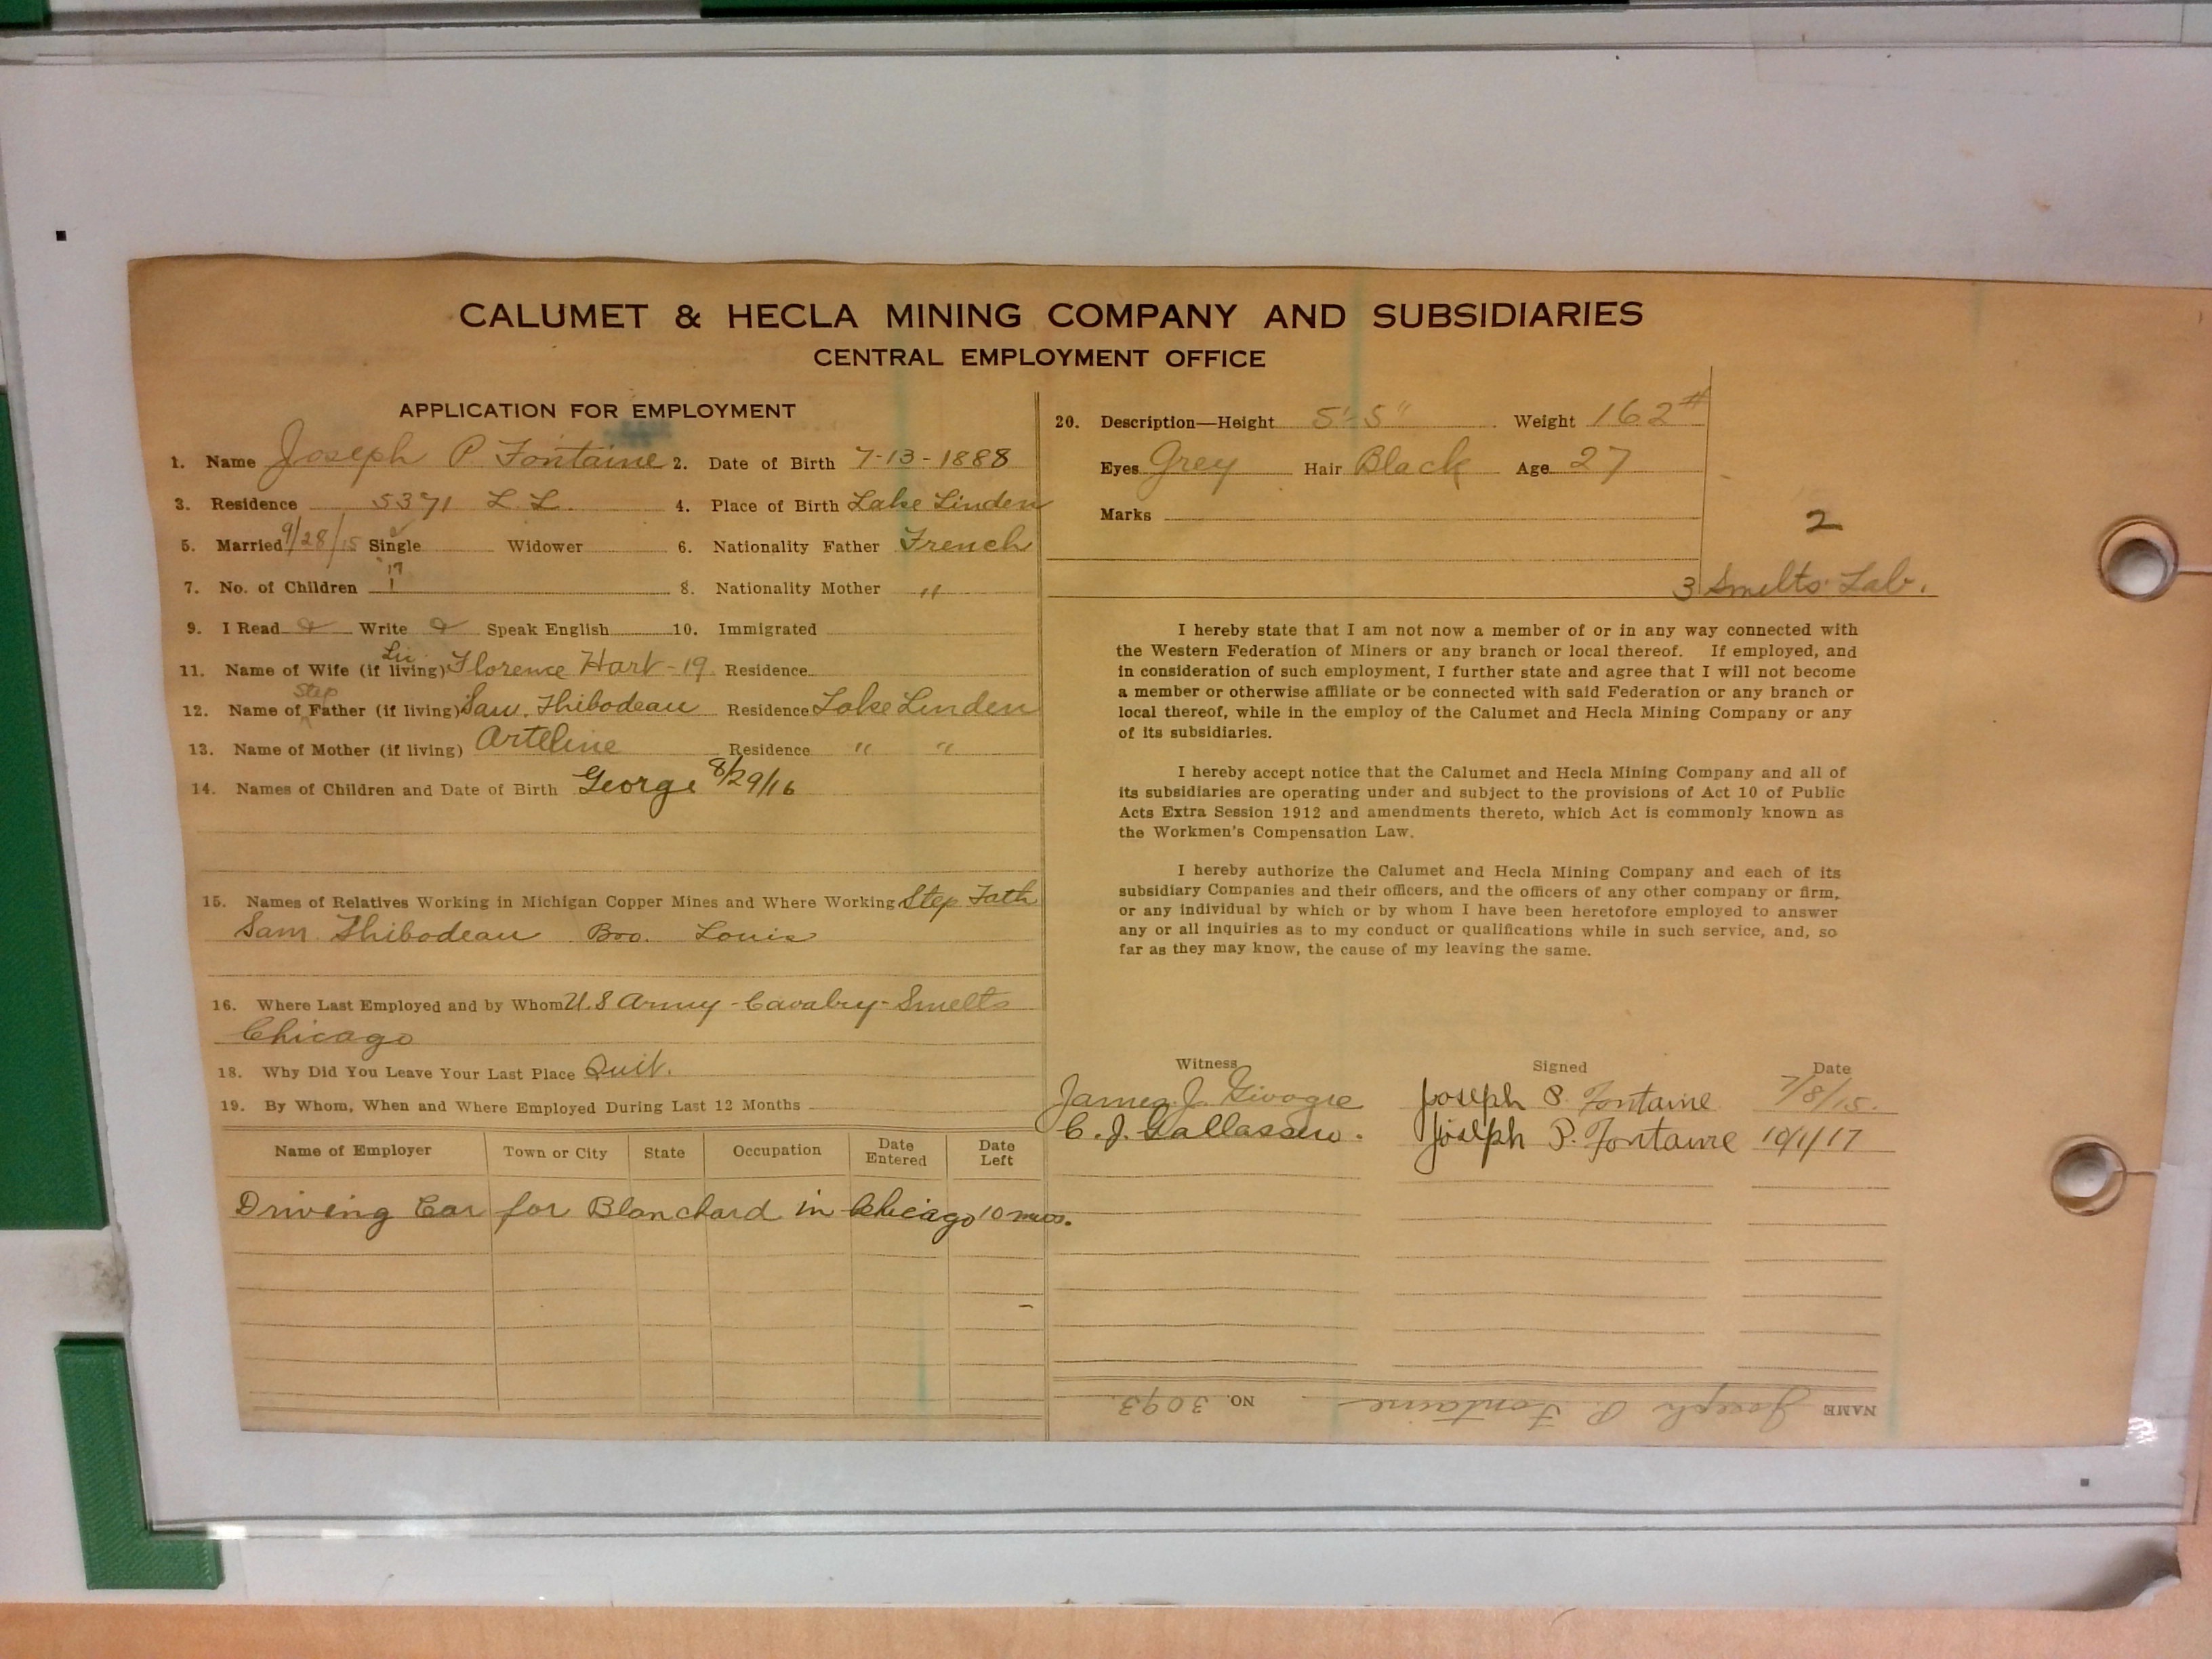 CALUMET & HECLA MINING COMPANY AND SUBSIDIARIES
CENTRAL EMPLOYMENT OFFICE
APPLICATION FOR EMPLOYMENT
1. Name Joseph P Fontaine 2. Date of Birth 7-13-1888
3. Residence 5371 L L. 4. Place of Birth Lake Linden
5. Married 9/28/15 Single Widower 6. Nationality Father French
7. No. of Children 1 '17 8. Nationality Mother "
9. I Read Write Speak English 10. Immigrated
11. Name of Wife (if living) Liv. Florence Hart - 19 Residence
12. Name of Step Father (if living) Sam. Thibodeau Residence Lake Linden
13. Name of Mother (if living) Arteline Residence " "
14. Names of Children and Date of Birth George 8/29/16
15. Names of Relatives Working in Michigan Copper Mines and Where Working Step Fath
Sam Thibodeau Bro. Louis
16. Where Last Employed and by Whom U.S Army - Cavalry - Smelts
Chicago
18. Why Did You Leave Your Last Place Quit.
19. By Whom, When and Where Employed During Last 12 Months
Name of Employer Town or City State Occupation Date Entered Date Left
Driving Car for Blanchard in Chicago 10 mos.
20. Description—Height 5'-5" Weight 162#
Eyes Grey Hair Black Age 27
Marks
2
3 Smelts Lab.
I hereby state that I am not now a member of or in any way connected with
the Western Federation of Miners or any branch or local thereof. If employed, and
in consideration of such employment, I further state and agree that I will not become
a member or otherwise affiliate or be connected with said Federation or any branch or
local thereof, while in the employ of the Calumet and Hecla Mining Company or any
of its subsidiaries.
I hereby accept notice that the Calumet and Hecla Mining Company and all of
its subsidiaries are operating under and subject to the provisions of Act 10 of Public
Acts Extra Session 1912 and amendments thereto, which Act is commonly known as
the Workmen's Compensation Law.
I hereby authorize the Calumet and Hecla Mining Company and each of its
subsidiary Companies and their officers, and the officers of any other company or firm,
or any individual by which or by whom I have been heretofore employed to answer
any or all inquiries as to my conduct or qualifications while in such service, and, so
far as they may know, the cause of my leaving the same.
Witness Signed Date
James J. Joseph P. Fontaine 7/8/15.
C. J. Joseph P. Fontaine 10/1/17
NAME Joseph P. Fontaine NO. 3093